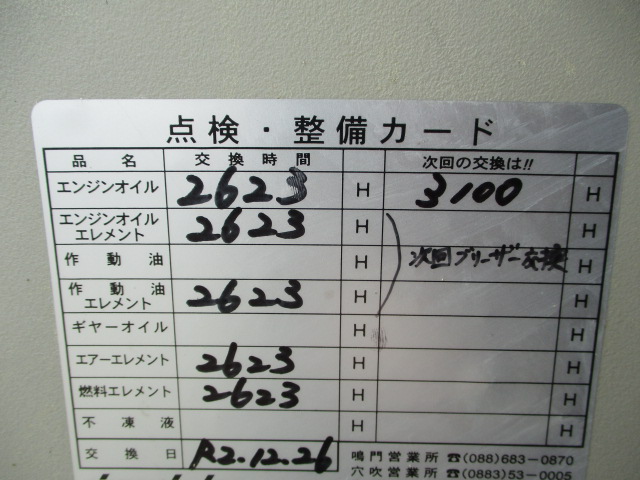 点検・整備カード
品名 交換時間 次回の交換は!!
エンジンオイル 2623 H 3100 H
エンジンオイル
エレメント 2623 H H
作動油 H 次回ブリーザー交換 H
作動油
エレメント 2623 H H
ギヤーオイル H H
エアーエレメント 2623 H H
燃料エレメント 2623 H H
不凍液 H H
交換日 R2.12.26 鳴門営業所 ☎(088)683-0870
穴吹営業所 ☎(0883)53-0005